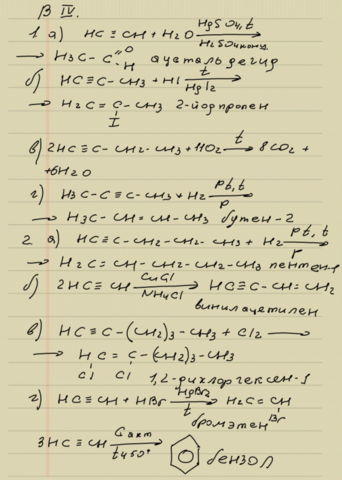 В IV.
1 а) HC≡CH + H2O HgSO4, t
H2SO4 конц
→ H3C-C=O
H
ацетальдегид
б) HC≡C-CH3 + HI t
HgI2
→ H2C=C-CH3 2-йодпропен
I
в) 2HC≡C-CH2-CH3 + 11O2 t→ 8CO2 +
+6H2O
г) H3C-C≡C-CH3 + H2 Pt, t
P
→ H3C-CH=CH-CH3 бутен-2
2 а) HC≡C-CH2-CH2-CH3 + H2 Pt, t
→ H2C=CH-CH2-CH2-CH3 пентен
б) 2HC≡CH CuCl
NH4Cl
HC≡C-CH=CH2
винилацетилен
в) HC≡C-(CH2)3-CH3 + Cl2 →
→ HC=C-(CH2)3-CH3
Cl Cl 1,2-дихлоргексен-1
г) HC≡CH + HBr HgBr2
t
H2C=CH
Br
бромэтен
3HC≡CH Cакт
t450°
бензол